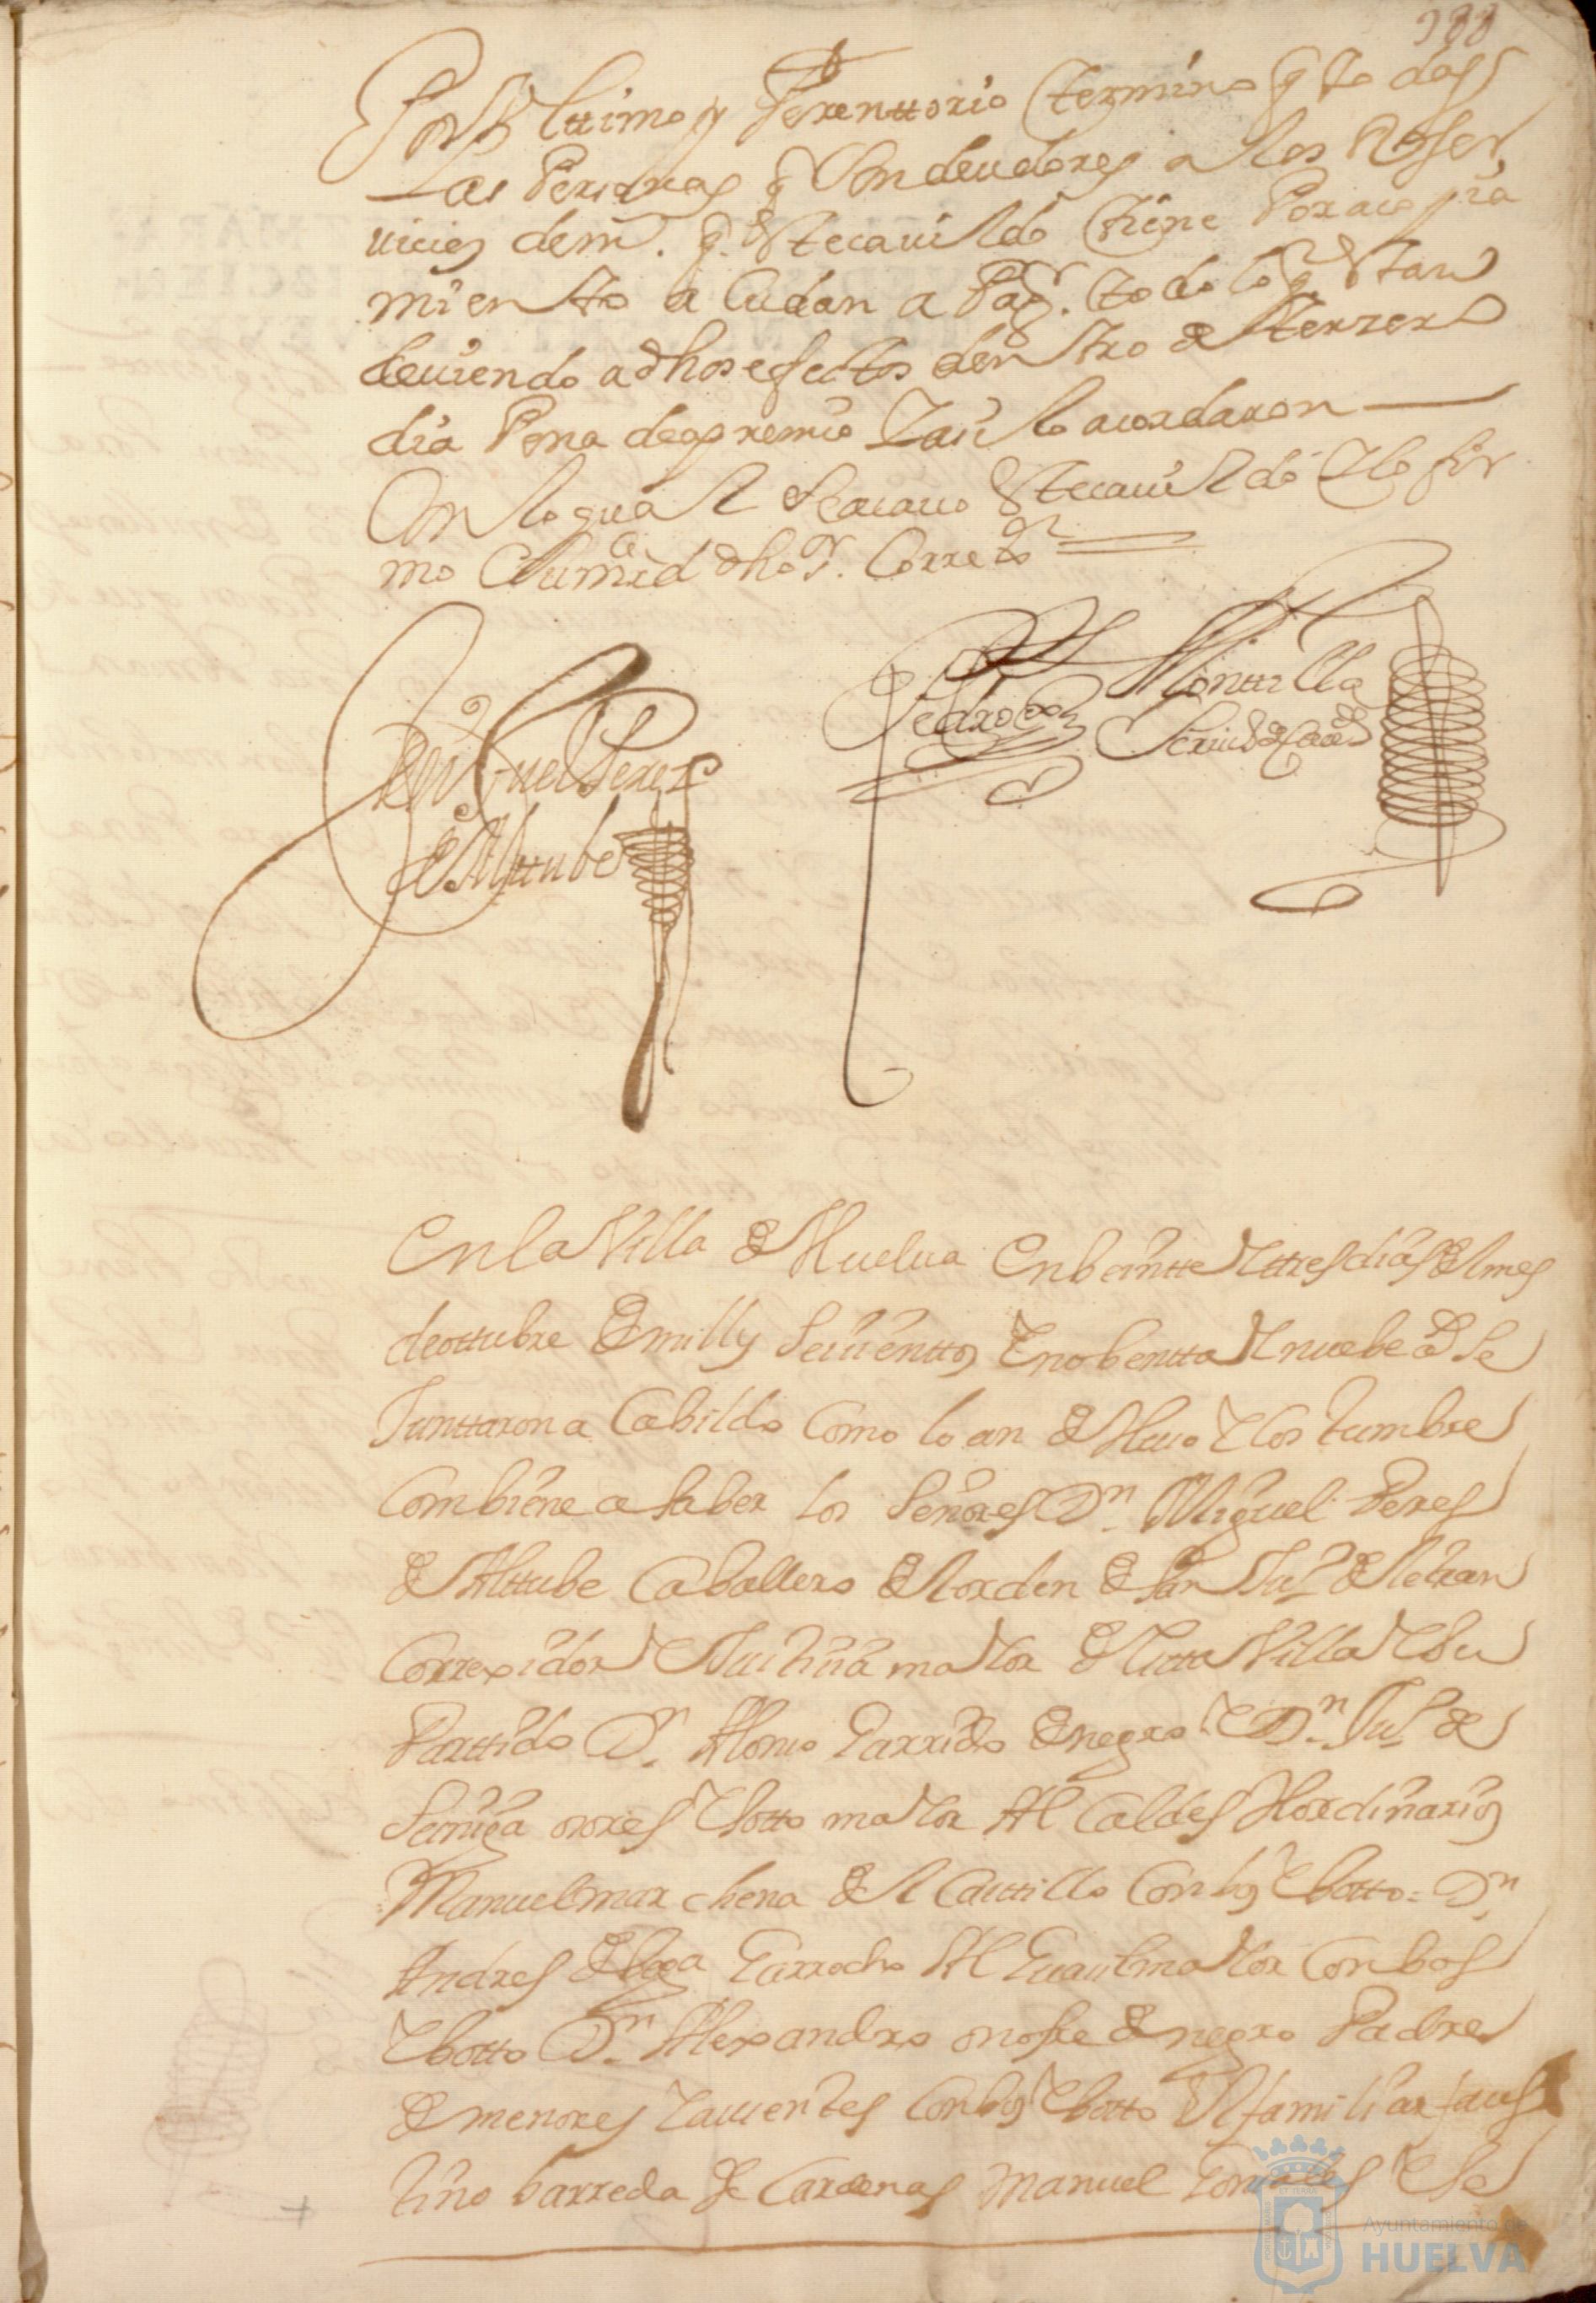 Por Ulttimo y Perenttorio termino q todas
Las Personas q son deudores a los R.s ser
uicios de m. q. Este cauildo tiene Por acopia
miento acudan a Pag.r todo lo q. Estan
deuiendo a dhos efectos dentro de terzero
dia Pena de apremio Y asi lo acordaron
Con lo qual Se acauo Este cauildo Y lo fir
mo Su mrd dho Sr. Corre.or
Dn Miguel Perez
de Alttube
Pedro
Monttilla
Scriu.o de Cau.do
En la Villa de Huelua En beintte Y ttres dias del mes
de ottubre de mill y Seiscienttos Y nobentta Y nuebe as Se
Junttaron a Cabildo Como lo an de Huso Y Costumbre
Combiene a saber los Señores Dn. Miguel Peres
de Alttube Caballero del orden de San Ju.o de Letran
Correxidor Y Justiçia maYor de estta Villa Y Su
Parttido Dn. Alonso Garrido de negro Y Dn. Ju.o de
Seruiga ores Y botto maYor Al Caldes Hordinarios
Manuel marchena del Casttillo Con bos Y botto = Dn.
Andres de bega Garrocho Al Guasil maYor Con bos
Y botto Dn. Alexandro onofre de negro Padre
de menores Y ausentes Con bos Y botto El familiar faus
tino barreda de Cardenas Manuel Gonsales Y Se
Ayuntamiento de
HUELVA